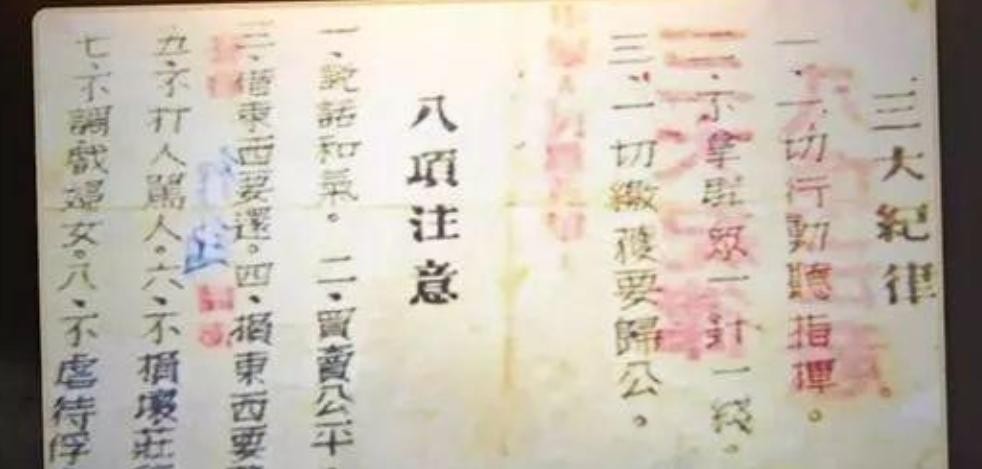 三大紀律
一、一切行動聽指揮。
二、不拿群眾一針一綫。
三、一切繳獲要歸公。
八項注意
一、說話和氣。二、買賣公平。
三、借東西要還。四、損東西要
五、不打人罵人。六、不損壞莊
七、不調戲婦女。八、不虐待俘